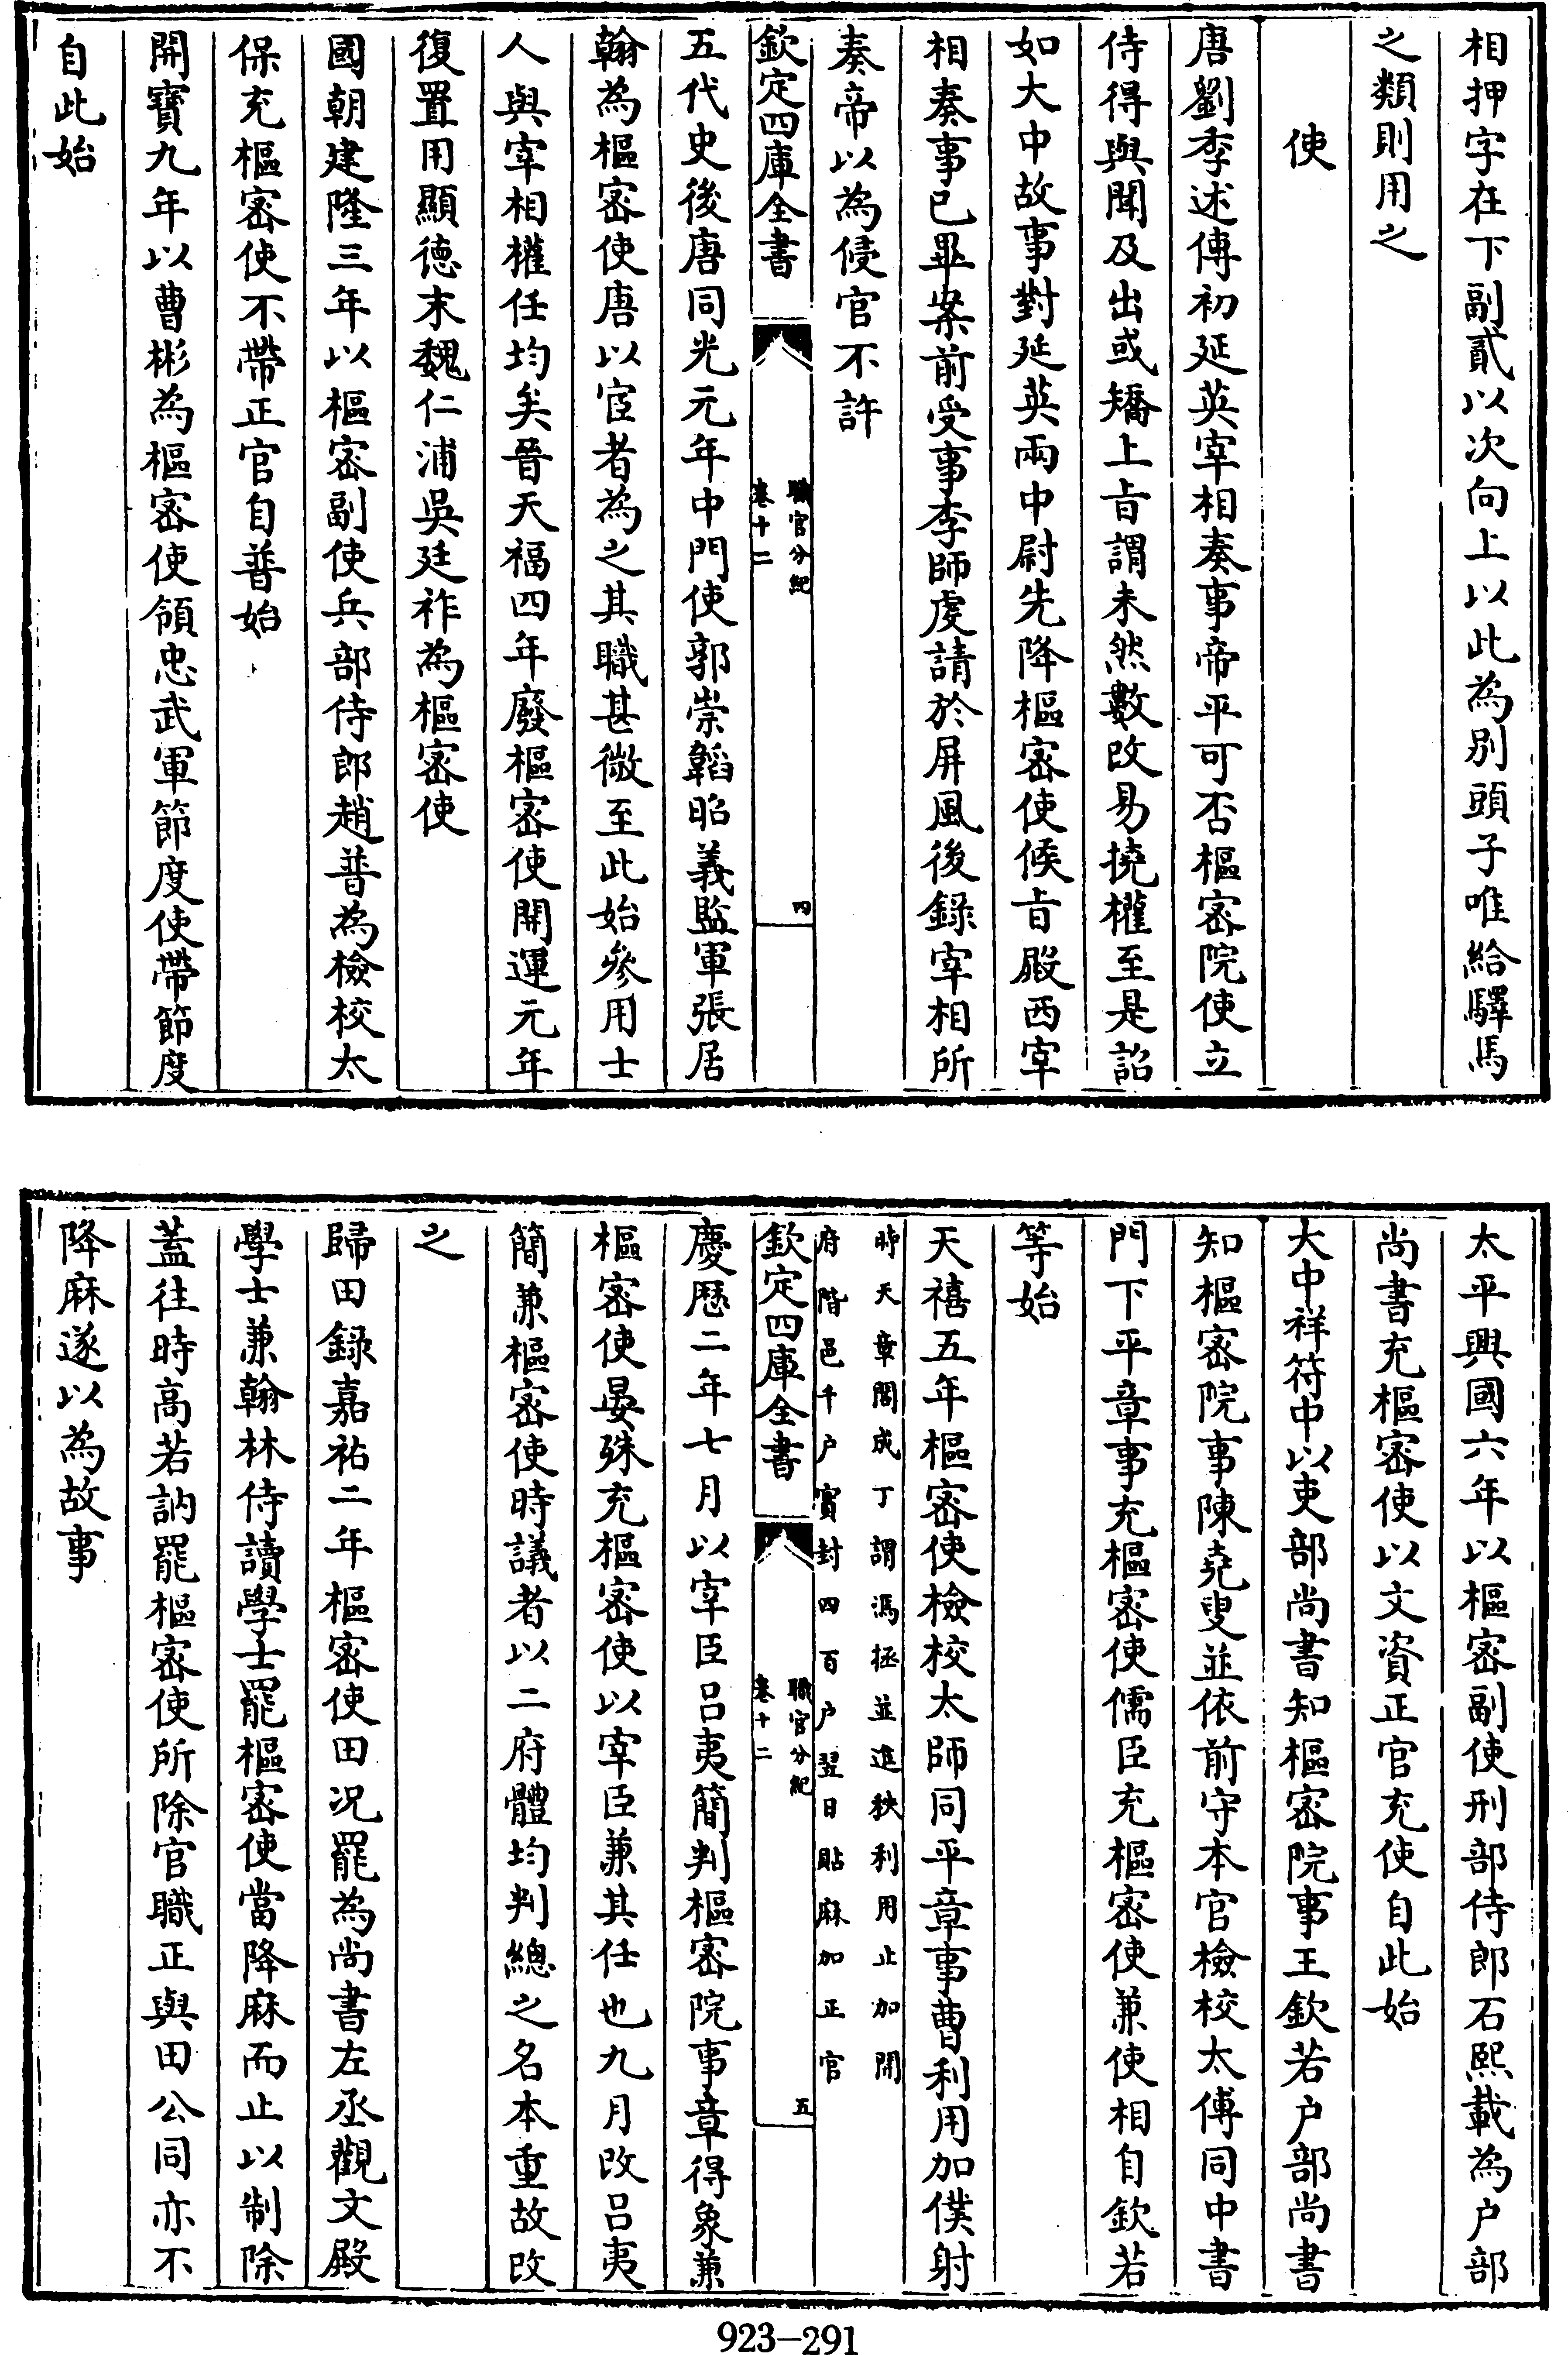 相押字在下副貳以次向上以此為別頭子唯給驛馬
之類則用之
使
唐劉季述傳初延英宰相奏事帝平可否樞密院使立
侍得與聞及出或矯上㫖謂未然數改易撓權至是詔
如大中故事對延英兩中尉先降樞密使候㫖殿西宰
相奏事已畢案前受事李師虔請於屏風後錄宰相所
奏帝以為侵官不許
欽定四庫全書
職官分紀
卷十二
四
五代史後唐同光元年中門使郭崇韜昭義監軍張居
翰為樞密使唐以宦者為之其職甚微至此始參用士
人與宰相權任均矣晉天福四年廢樞密使開運元年
復置用顯德末魏仁浦吳廷祚為樞密使
國朝建隆三年以樞密副使兵部侍郎趙普為檢校太
保充樞密使不帶正官自普始
開寶九年以曹彬為樞密使領忠武軍節度使帶節度
自此始
太平興國六年以樞密副使刑部侍郎石熙載為户部
尚書充樞密使以文資正官充使自此始
大中祥符中以吏部尚書知樞密院事王欽若户部尚書
知樞密院事陳堯叟並依前守本官檢校太傅同中書
門下平章事充樞密使儒臣充樞密使兼使相自欽若
等始
天禧五年樞密使檢校太師同平章事曹利用加僕射
時天章閣成丁謂馮拯並進秩利用止加開
府階邑千户實封四百户翌日貼麻加正官
欽定四庫全書
職官分紀
卷十二
五
慶歷二年七月以宰臣吕夷簡判樞密院事章得象兼
樞密使晏殊充樞密使以宰臣兼其任也九月改吕夷
簡兼樞密使時議者以二府體均判總之名本重故改
之
歸田錄嘉祐二年樞密使田况罷為尚書左丞觀文殿
學士兼翰林侍讀學士罷樞密使當降麻而止以制除
蓋往時高若訥罷樞密使所除官職正與田公同亦不
降麻遂以為故事
923-291